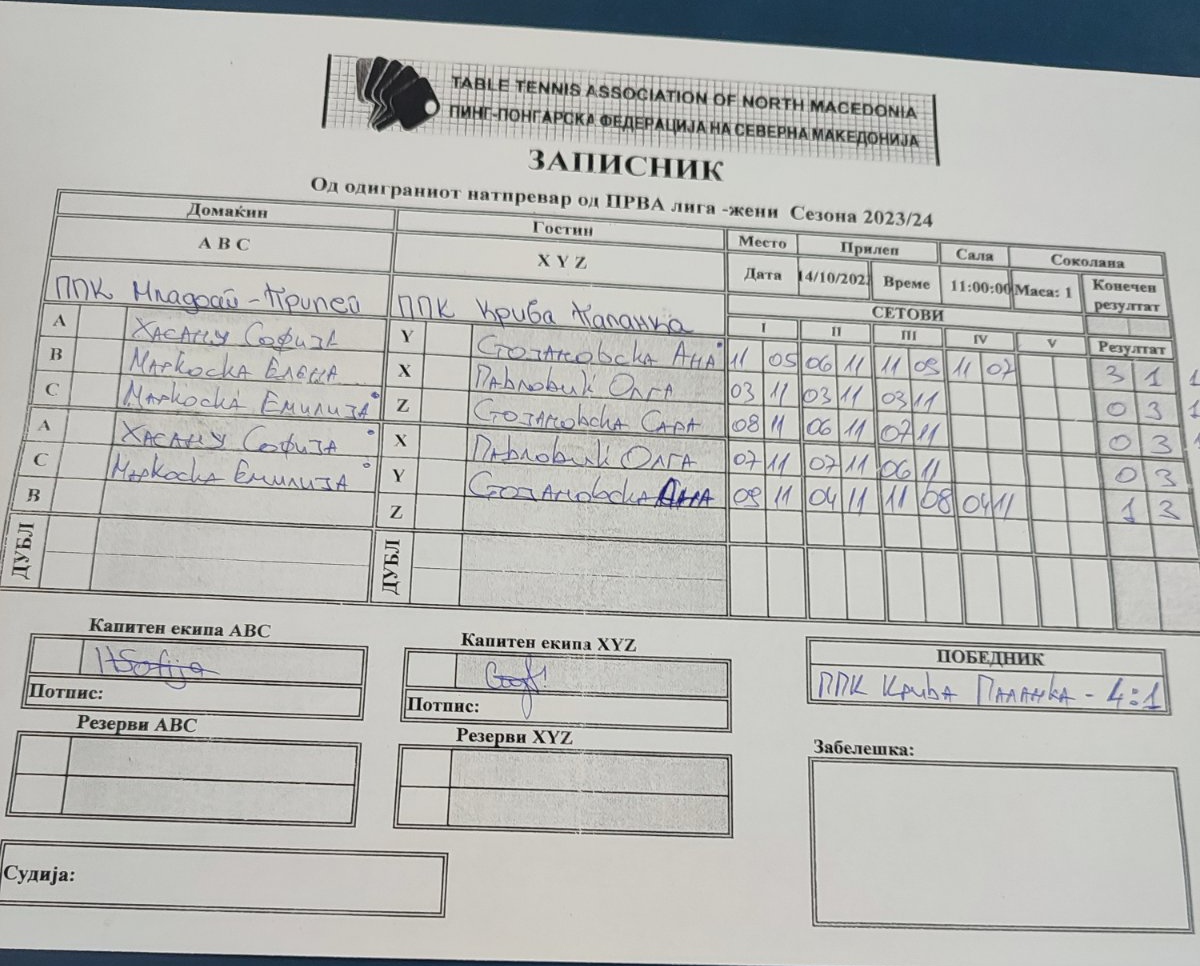 TABLE TENNIS ASSOCIATION OF NORTH MACEDONIA
ПИНГ-ПОНГАРСКА ФЕДЕРАЦИЈА НА СЕВЕРНА МАКЕДОНИЈА
ЗАПИСНИК
Од одиграниот натпревар од ПРВА лига -жени Сезона 2023/24
Домаќин Гостин Место Прилеп Сала Соколана
A B C X Y Z Дата 14/10/202 Време 11:00:00 Маса: 1 Конечен резултат
ППК Младост - Прилеп ППК Крива Паланка СЕТОВИ
I II III IV V Резултат
A Хасану Софија Y Стојановска Ана 11 05 06 11 11 09 11 07 3 1
B Маркоска Елена X Павловиќ Олга 03 11 03 11 03 11 0 3
C Маркоска Емилија Z Стојановска Сара 08 11 06 11 07 11 0 3
A Хасану Софија X Павловиќ Олга 07 11 07 11 06 11 0 3
C Маркоска Емилија Y Стојановска Ана 09 11 04 11 11 08 04 11 1 3
B Z
ДУБЛ ДУБЛ
Капитен екипа ABC Капитен екипа XYZ ПОБЕДНИК
HSofija ППК Крива Паланка - 4:1
Потпис: Потпис:
Резерви ABC Резерви XYZ Забелешка:
Судија: